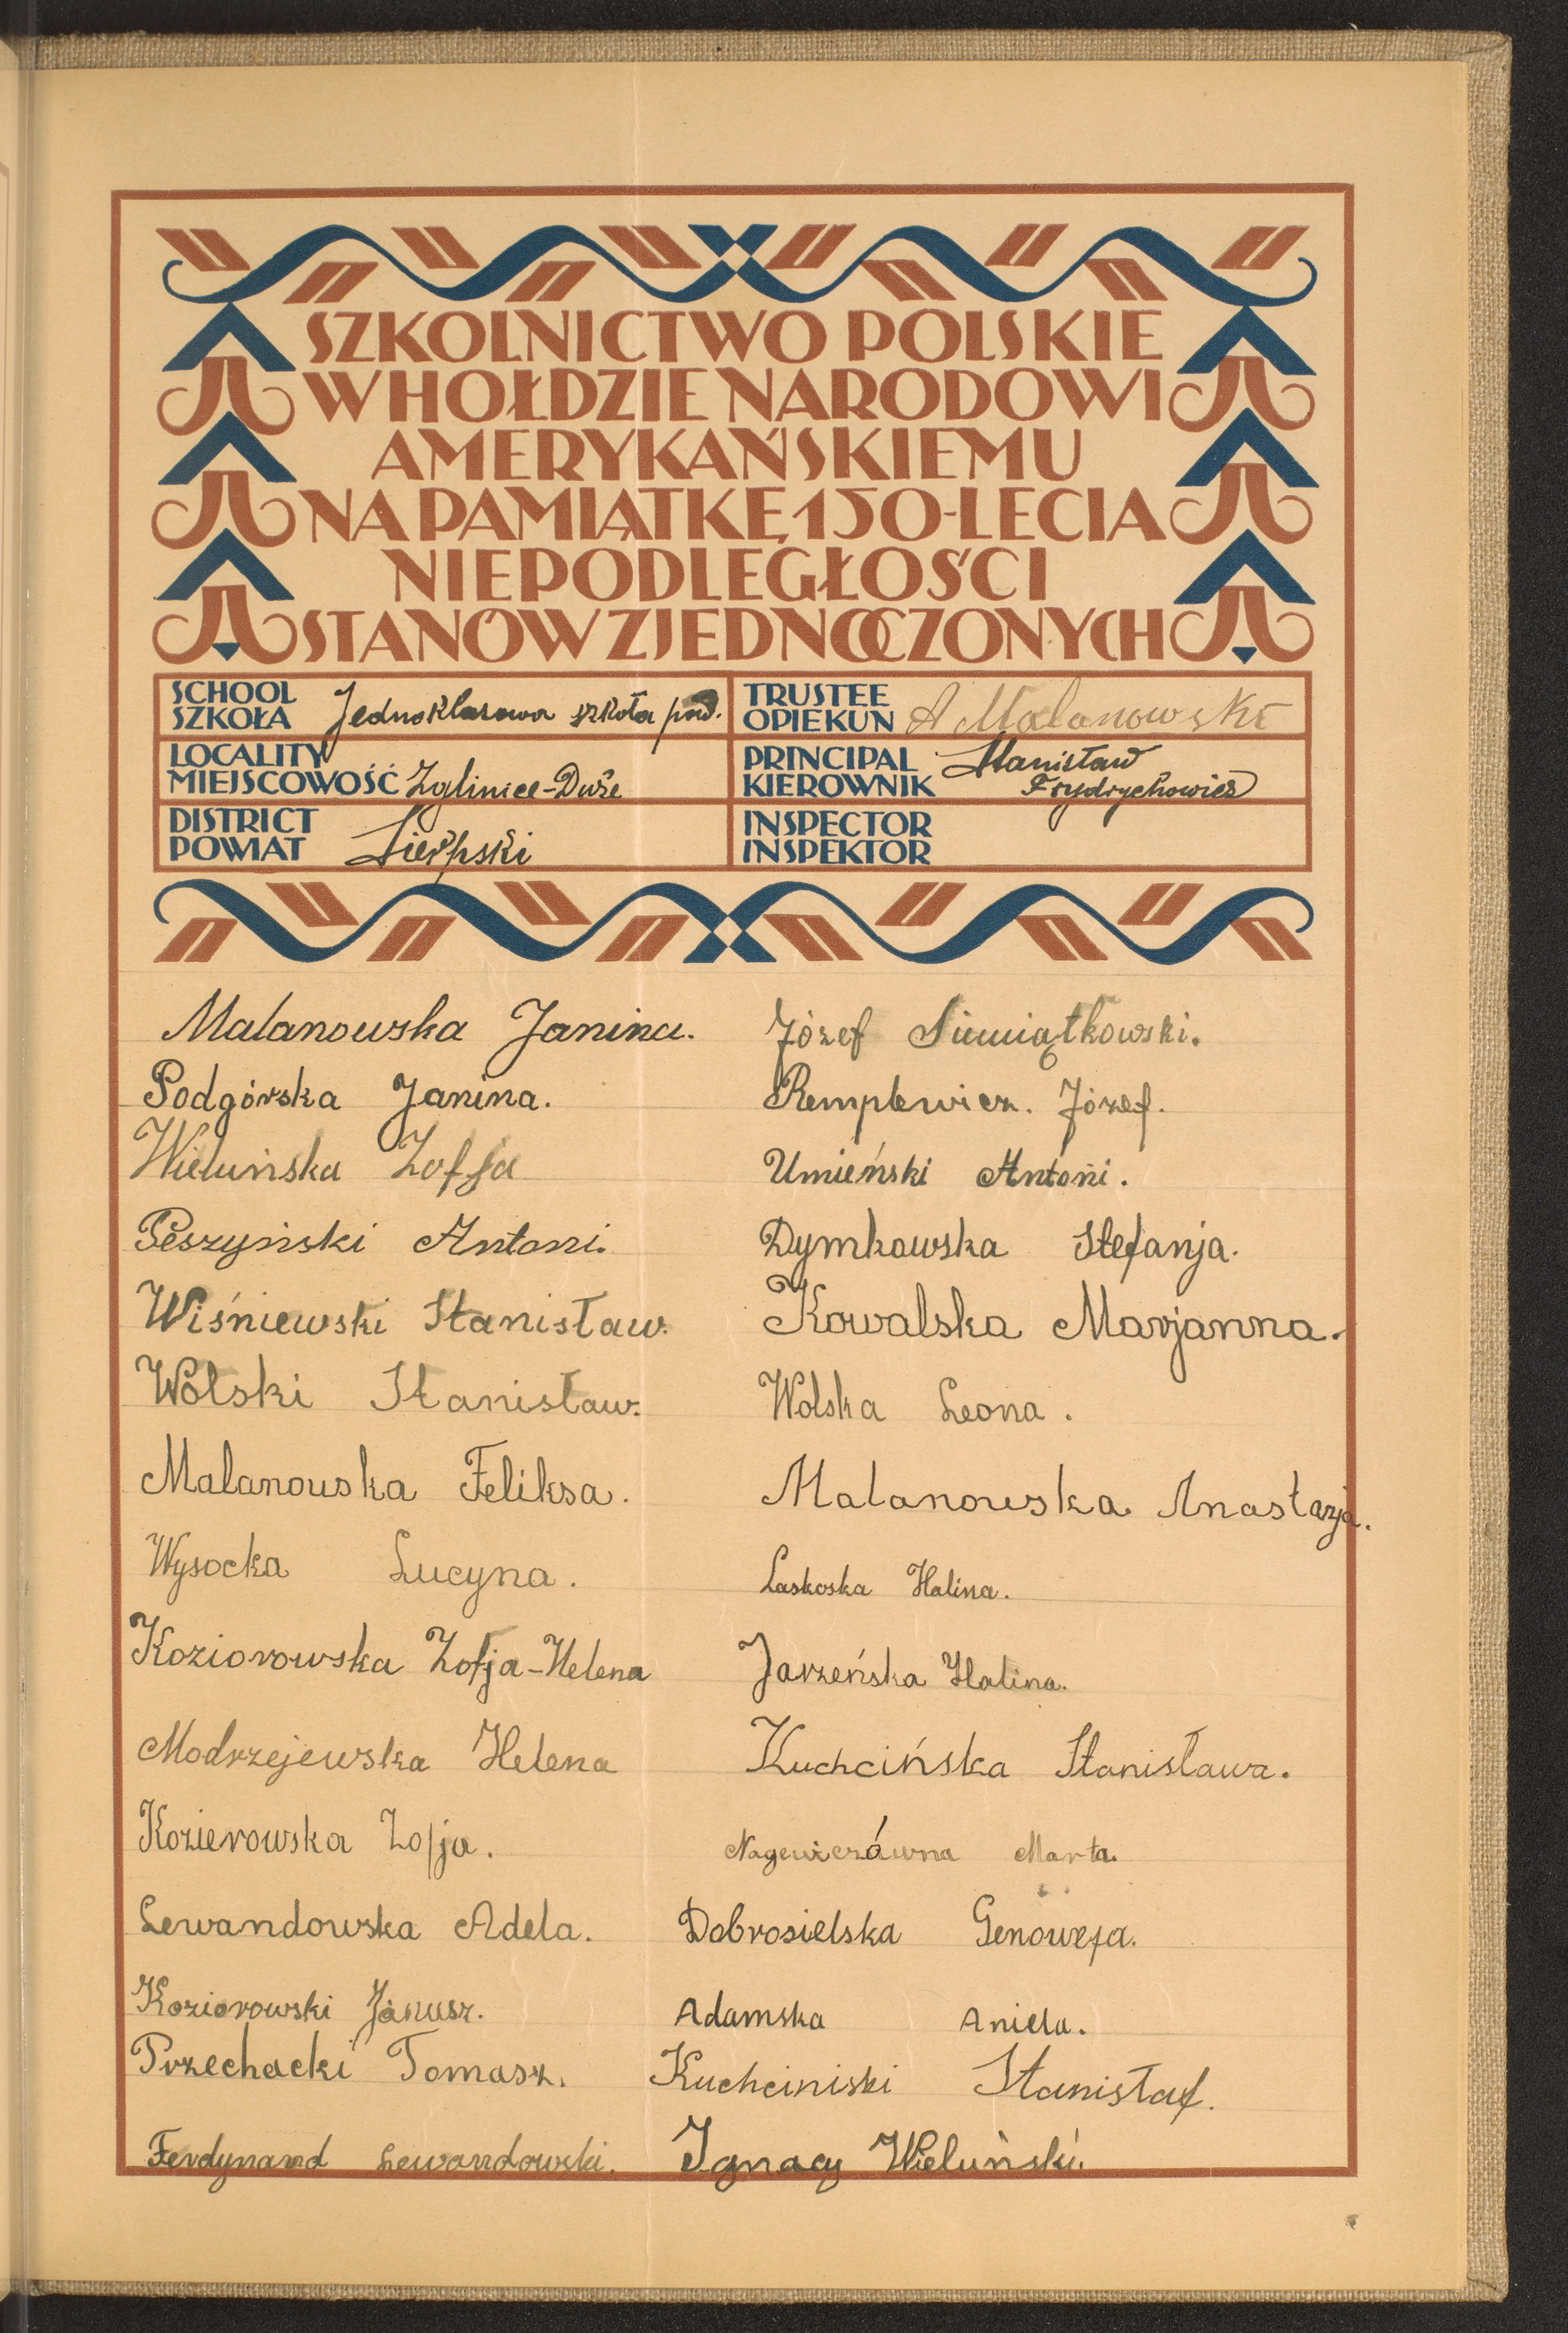 SZKOLNICTWO POLSKIE
W HOŁDZIE NARODOWI
AMERYKAŃSKIEMU
NA PAMIĄTKĘ 150-LECIA
NIEPODLEGŁOŚCI
STANÓW ZJEDNOCZONYCH
SCHOOL
SZKOŁA Jednoklasowa szkoła pow.
TRUSTEE
OPIEKUN A Malanowski
LOCALITY
MIEJSCOWOŚĆ Zglinice-Duże
PRINCIPAL Stanisław
KIEROWNIK Frydrychowicz
DISTRICT
POWIAT Sierpski
INSPECTOR
INSPEKTOR
Malanowska Janina.
Podgórska Janina.
Wieluńska Zofja
Peszyński Antoni.
Wiśniewski Stanisław.
Wolski Stanisław.
Malanouska Feliksa.
Wysocka Lucyna.
Koziorowska Zofja-Helena
Modrzejewska Helena
Kozierowska Zofja.
Lewandowska Adela.
Koziorowski Janusz.
Przechacki Tomasz.
Ferdynand Lewandowski.
Józef Siemiątkowski.
Remplewicz. Józef.
Umieński Antoni.
Dymkowska Stefanja.
Kowalska Marjanna.
Wolska Leona.
Malanowska Anastazja.
Laskoska Halina.
Jarzeńska Halina.
Kuchcińska Stanisława.
Nagewiczówna Marta.
Dobrosielska Genowefa.
Adamska Aniela.
Kuchciniski Stanisłaf.
Ignacy Wieluński.